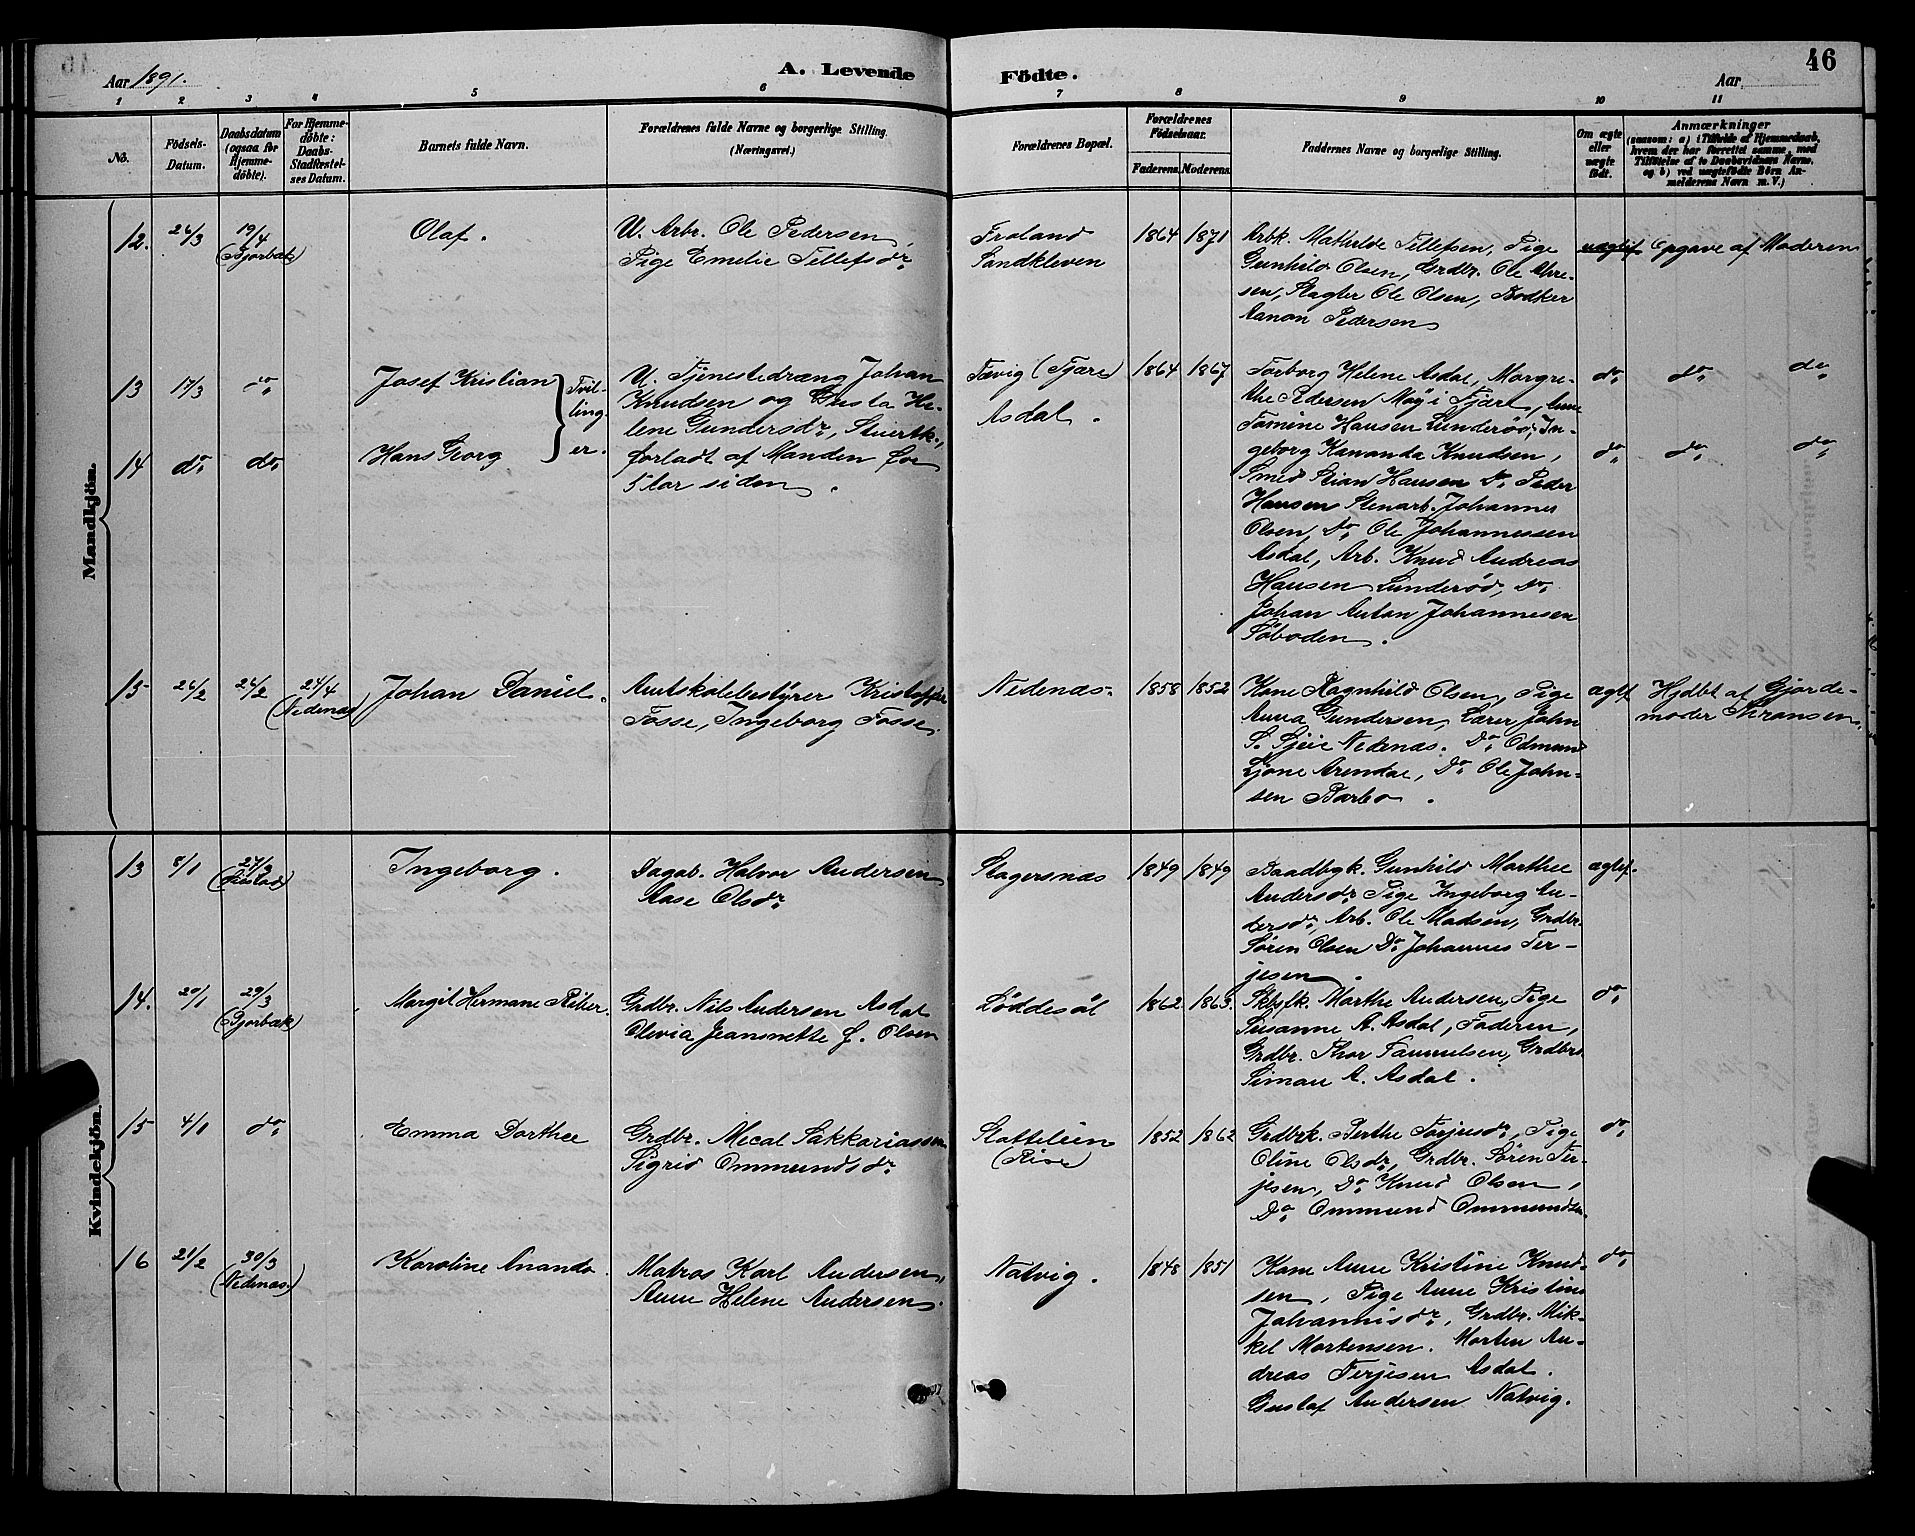 Aar 1891.
A. Levende Födte.
Aar
46
1 2 3 4 5 6 7 8 9 10 11
No.
Födsels-
Datum.
Daabsdatum
(ogsaa for
Hjemme-
döbte).
For Hjemme-
döbte:
Daabs-
Stadfæstel-
ses Datum.
Barnets fulde Navn.
Forældrenes fulde Navne og borgerlige Stilling.
(Næringsvei.)
Forældrenes Bopæl.
Forældrenes
Födselsaar.
Faderens. Moderens.
Faddernes Navne og borgerlige Stilling.
Om ægte
eller
uægte
født.
Anmærkninger
(saasom: a) i Tilfælde af Hjemmedaab,
hvem der har forrettet samme, med
Tilföielse af to Daabsvidners Navne,
og b) ved uægtefödte Börn An-
melderens Navn m. V.)
Mandkjön.
12. 26/3 19/4
(Bjorbæk)
Olaf.
U. Arbr. Ole Pedersen,
Pige Emelie Tellefsdr.
Froland
Sandkleven
1864 1871
Arbk. Mathilde Tellefsen, Pige
Gunhild Olsen, Grdbr. Ole
sen, Slagter Ole Olsen, Bødker
Aanon Pedersen
uægtef Opgave af Moderen
13 17/3 do.
Josef Kristian
Tvil-
ling-
er.
U. Tjenestedræng Johan
Knudsen og Gusta He-
lene Gundersdr.,
forladt af Manden for
5 Aar siden.
Fævig (Fjære)
Asdal.
1864 1867
Torborg Helene Asdal, Margre-
the Pedersen Møy i Fjære, Anne
Tomine Hansen Lunderød, In-
geborg Knudsen,
Smed Stian Hansen Do. Peder
Hansen Stenarb. Johannes
Olsen, Do. Ole Johannessen
Asdal, Arb. Knud Andreas
Hansen Lunderød, Do.
Johan Anton Johannesen
Søboden.
do. do. do.
14 do. do.
Hans Georg
do. do. do.
15 26/2 26/2 24/4
(Nedenæs)
Johan Daniel.
Amtskolebestyrer Kristoffer
Fosse, Ingeborg Fosse.
Nedenæs.
1858 1852
Kone Ragnhild Olsen, Pige
Anna Gundersen, Lærer John
S. Nedenæs. Do. Odmund
Ljone Arendal, Do. Ole John-
sen Barbo.
ægtf Hjdbt af Gjorde-
moder
Kvindekjön.
13 8/1 27/3
Ingeborg.
Dagab. Halvor Andersen
Aase Olsdr.
Slagersnæs
1849 1849
Baadbyk. Gunhild Marthee
Andersdr. Pige Ingeborg An-
dersdr., Arb. Ole Madsen, Grdbr.
Søren Olsen Do. Johannes Ter-
jesen.
ægtf.
14. 20/1 29/3
(Bjorbæk)
Margit Hermane Ritter.
Grdbr. Nils Andersen Asdal
Olevia Jeannette f. Olsen
Løddesøl
1862 1863.
Skbsfk. Marthe Andersen, Pige
Susanne A. Asdal, Faderen,
Grdbr. Thor Samuelsen, Grdbrs
Simon A. Asdal.
do.
15 4/1 do.
Emma Dorthee
Grdbr. Mecal Sakkariassen
Sigrid Ommundsdr.
Slatteleen
1852 1862
Grdbrk. Berthe Torjusdr., Pige
Oline Olsdr., Grdbr. Søren Ter-
jesen, Do. Knud Olsen,
Do. Ommund Ommundsen.
do.
16 21/2 30/3
(Nedenæs.)
Karoline Ananda.
Matros Karl Andersen,
Anne Helene Andersen.
Natvig.
1848 1851
Kone Anne Kristine Knud-
sen, Pige Anne Kristine
Johannisdr., Grdbr. Mik-
kel Mortensen. Morten An-
dreas Terjesen Asdal.
Gustaf Andersen Natvig.
do.